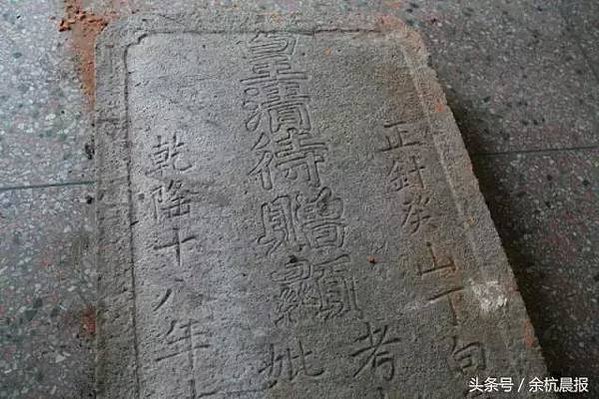 正針癸山丁向
皇清待贈顯
考
妣
乾隆十八年
头条号 / 余杭晨报